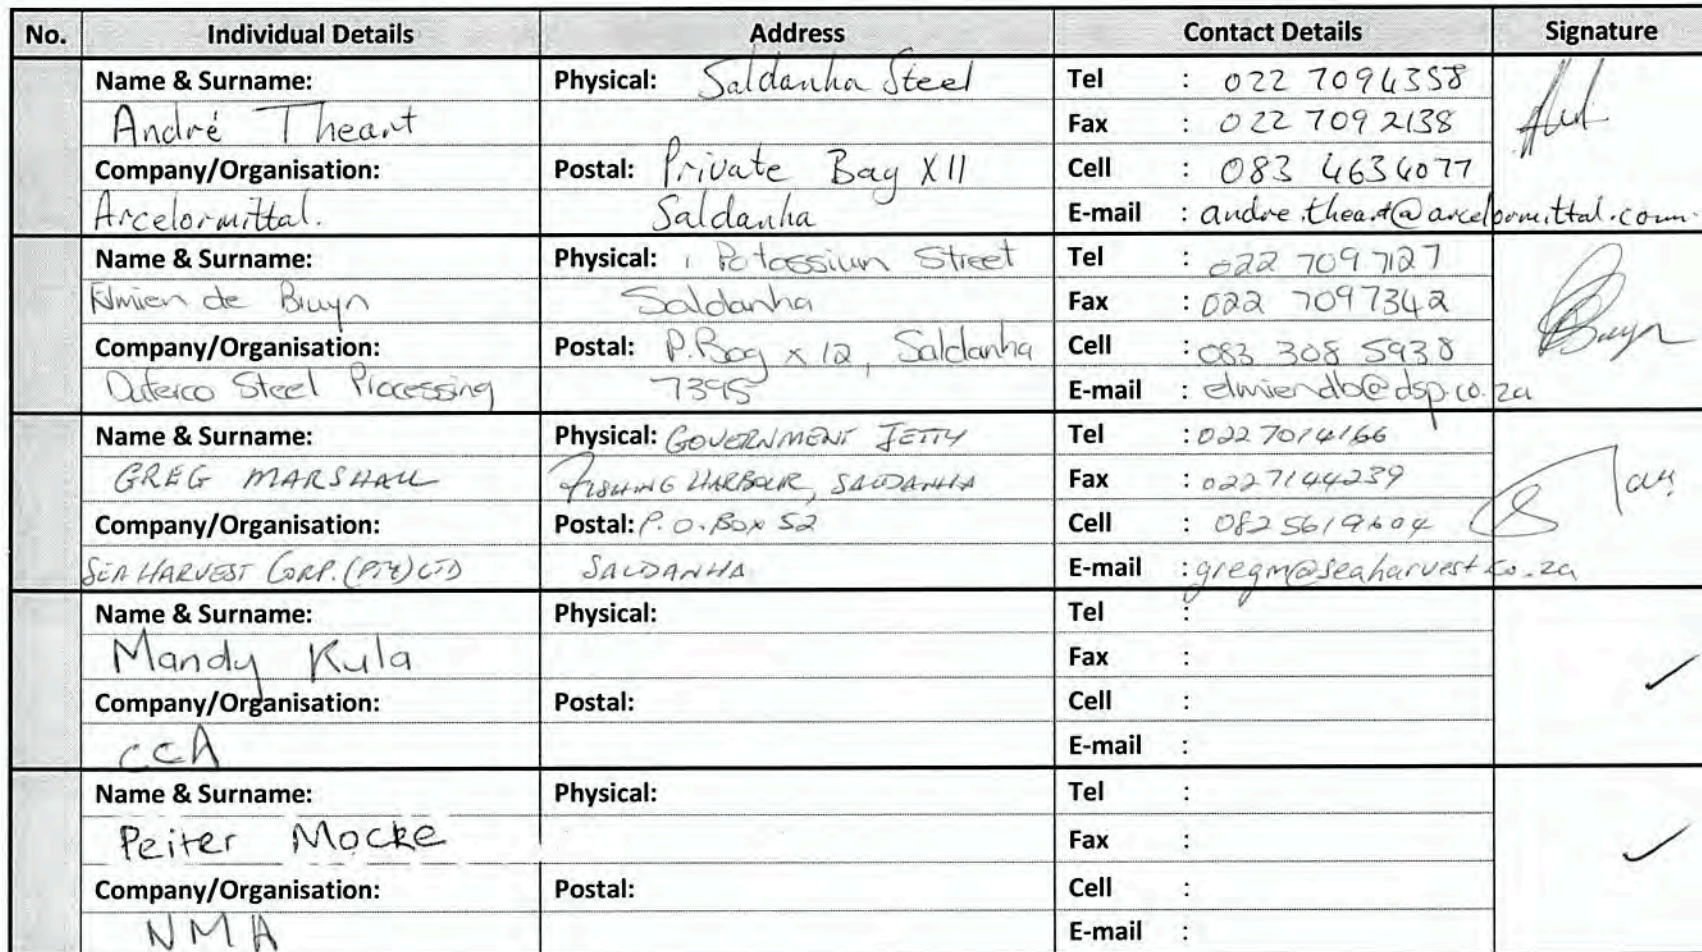 No. Individual Details Address Contact Details Signature
Name & Surname: Physical: Saldanha Steel Tel : 022 7094358
André Theart Fax : 022 709 2138
Company/Organisation: Postal: Private Bag X11 Cell : 083 4634077
Arcelormittal. Saldanha E-mail : andre.theart@arcelormittal.com
Name & Surname: Physical: 1 Potassium Street Tel : 022 709 7127
Elmien de Bruyn Saldanha Fax : 022 7097342
Company/Organisation: Postal: P.Bag x 12, Saldanha Cell : 083 308 5938
Duferco Steel Processing 7395 E-mail : elmiendb@dsp.co.za
Name & Surname: Physical: GOVERNMENT JETTY Tel : 022 7014166
GREG MARSHALL FISHING HARBOUR, SALDANHA Fax : 0227144239
Company/Organisation: Postal: P.O. Box 52 Cell : 0825619604
SEA HARVEST CORP. (PTY) LTD SALDANHA E-mail : gregm@seaharvest.co.za
Name & Surname: Physical: Tel :
Mandy Kula Fax :
Company/Organisation: Postal: Cell :
CCA E-mail :
Name & Surname: Physical: Tel :
Peiter Mocke Fax :
Company/Organisation: Postal: Cell :
NMA E-mail :